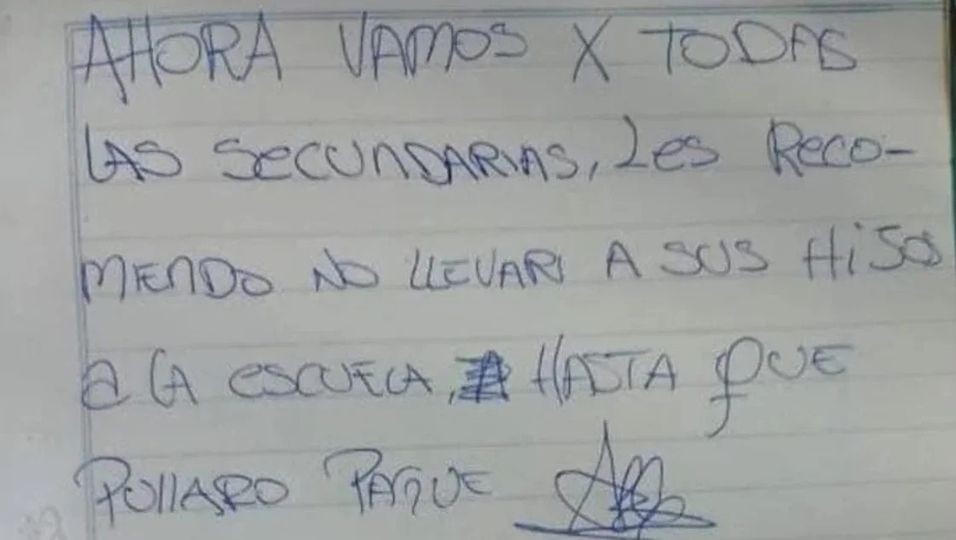 AHORA VAMOS X TODAS
LAS SECUNDARIAS, LES RECO-
MENDO NO LLEVAR A SUS HIJOS
A LA ESCUELA, HASTA QUE
PULLARO PAGUE